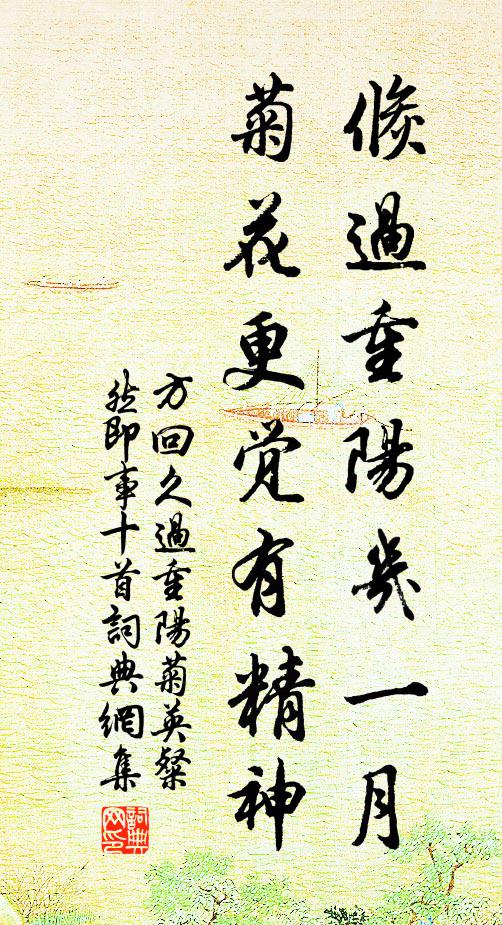 倏過重陽幾一月
菊花更覺有精神
方回久過重陽菊英粲
然即事十首詞典網集
詞典
网印